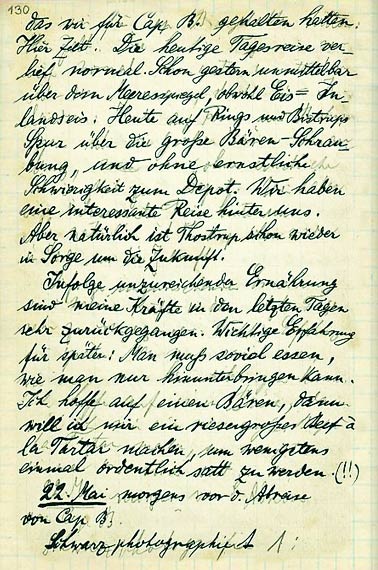 130
das wir für Cap B. gehalten hatten.
Hier Zelt. Die heutige Tagesreise ver
lief normal. Schon gestern unmittelbar
über dem Meeresspiegel, obwohl Eis = In-
landseis. Heute auf Rings und Bistrups
Spur über die große Bären-Schrau-
bung, und ohne ernstliche
Schwierigkeit zum Depot. Wir haben
eine interessante Reise hinter uns.
Aber natürlich ist Thostrup schon wieder
in Sorge um die Zukunft.
Infolge unzureichender Ernährung
sind meine Kräfte in den letzten Tagen
sehr zurückgegangen. Wichtige Erfahrung
für später: Man muß soviel essen,
wie man nur hinunterbringen kann.
Ich hoffe auf einen Bären, dann
will ich mir ein riesengroßes Beef à
la Tartar machen, um wenigstens
einmal ordentlich satt zu werden. (!!)
22. Mai morgens vor d. Abreise
von Cap B.
Schwarz photographiert 1: